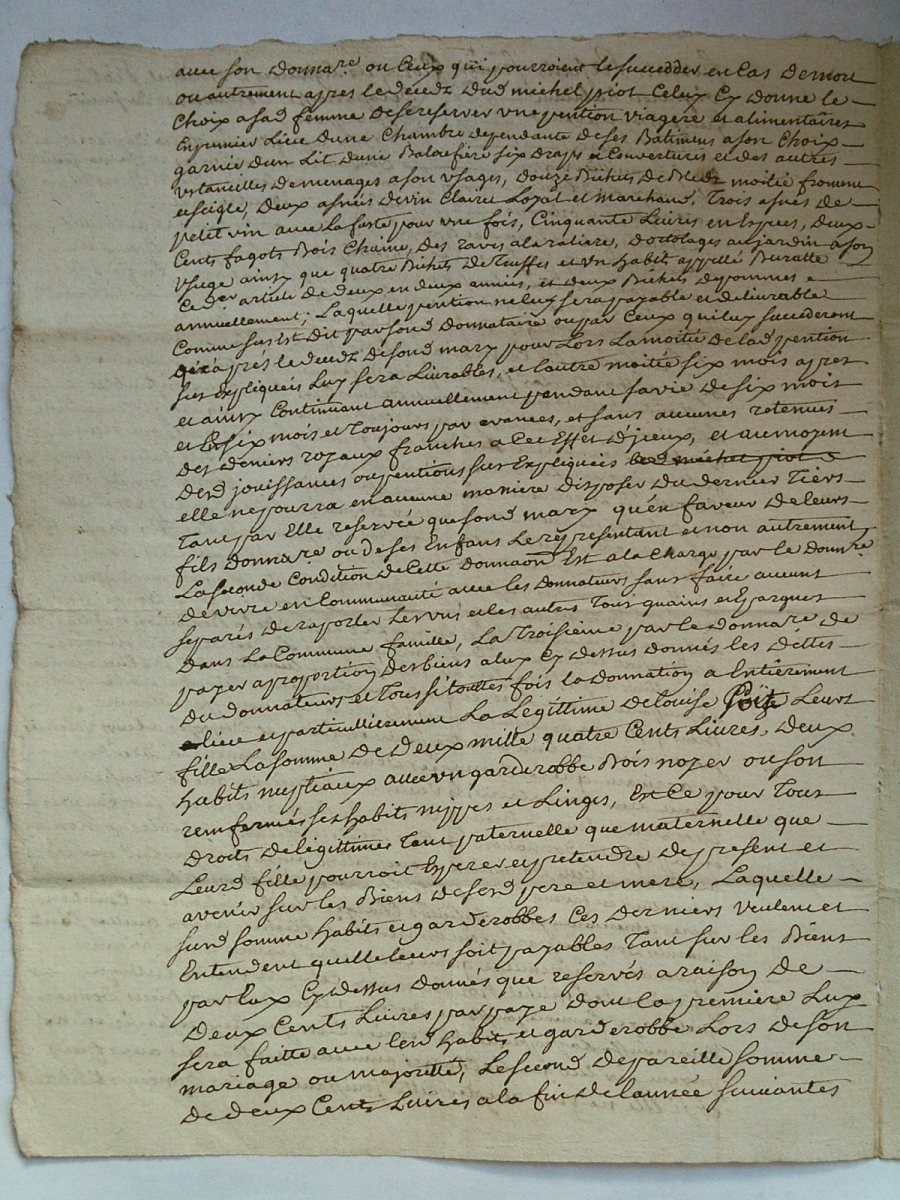 avec son donnare. ou Ceux qui pourroient le succedder en Cas de mort
ou autrement apres le decedz dud michel piot Celuy Cy donne le
Choix a sad femme de se reserver une pention viagere et alimentaires
En premier Lieu dune Chambre dependante de ses Batimens a son Choix
garnie dun Lit dune Baloufiere six draps 2 Couvertures et des autres
ustancilles de menages a son usages, douze Bichets de Bledz moitiée froment
et seigle, deux asnés de vin Claire Loyal et marchand, Trois asnés de
petit vin avec La futte pour une fois, Cinquante Livres en Espece, deux
Cents fagots Bois Chaine, des raves a la ratiere, d'ortolages au jardin a son
usage ainsy que quatre Bichets de Truffes et un habit appellé Buratte
Ce der article de deux en deux années, et deux Bichets de pommes
annuellement; Laquelle pention ne luy sera payable et delivrable
Comme susest dit par sond donnataire ou par Ceux qui luy succederont
qu'après le decedz de sond mary pour Lors La moitié de lad pention
sus expliquéis Luy sera Livrables, et l'autre moitiée six mois apres
et ainsy Continuant annuellement pendant sa vie de six mois
et En six mois et Toujours par avances, et sans aucunes retenues
des deniers royaux franches a Cet Effet d'iceux, et au moyent
desd jouissances ou pentions sus Expliquéis led michel piot
elle ne pourra en aucune maniere disposer du dernier Tiers
Tant par Elle reservée que sond mary qu'en faveur de leurs
fils donnare ou de ses Enfans Le representant et non autrement
La seconde Condition de Cette donnaon Est a la Charge par le donnre
de vivre en Communauté avec les donnateurs sans faire aucuns
separés de raporter Les uns et les autres Tous quains et Eparques
dans La Commune famille, La Troisieme par le donnare de
payer a proportion des biens a luy Cy dessus donnés les dettes
du donnateurs et Tous si touttes fois la donnation a Entièrement
lieu et particullierement La Legittime de Louise Poite Leurs
fille La somme de deux mille quatre Cents Livres, deux
habits nuptiaux avec un garderobbe Bois noyer ou son
remfermés ses habits nippes et Linges, Et Ce pour Tous
droits de legittimes Tant paternelle que maternelle que
Leurd fille pourroit Esperer et pretendre de present et
avenir sur les Biens de sesd pere et mere, Laquelle
susd somme habits et garderobbes Ces derniers Veulent et
Entendent quelle leurs soit payables Tant sur les Biens
par Eux Cy dessus donnés que reservés a raison de
deux Cents Livres par paye dont la premiere Luy
sera faitte avec lesd habits et garderobbe Lors de son
mariage ou majorité, Le second de pareille somme
de deux Cents Livres a la fin de lannée suivantes